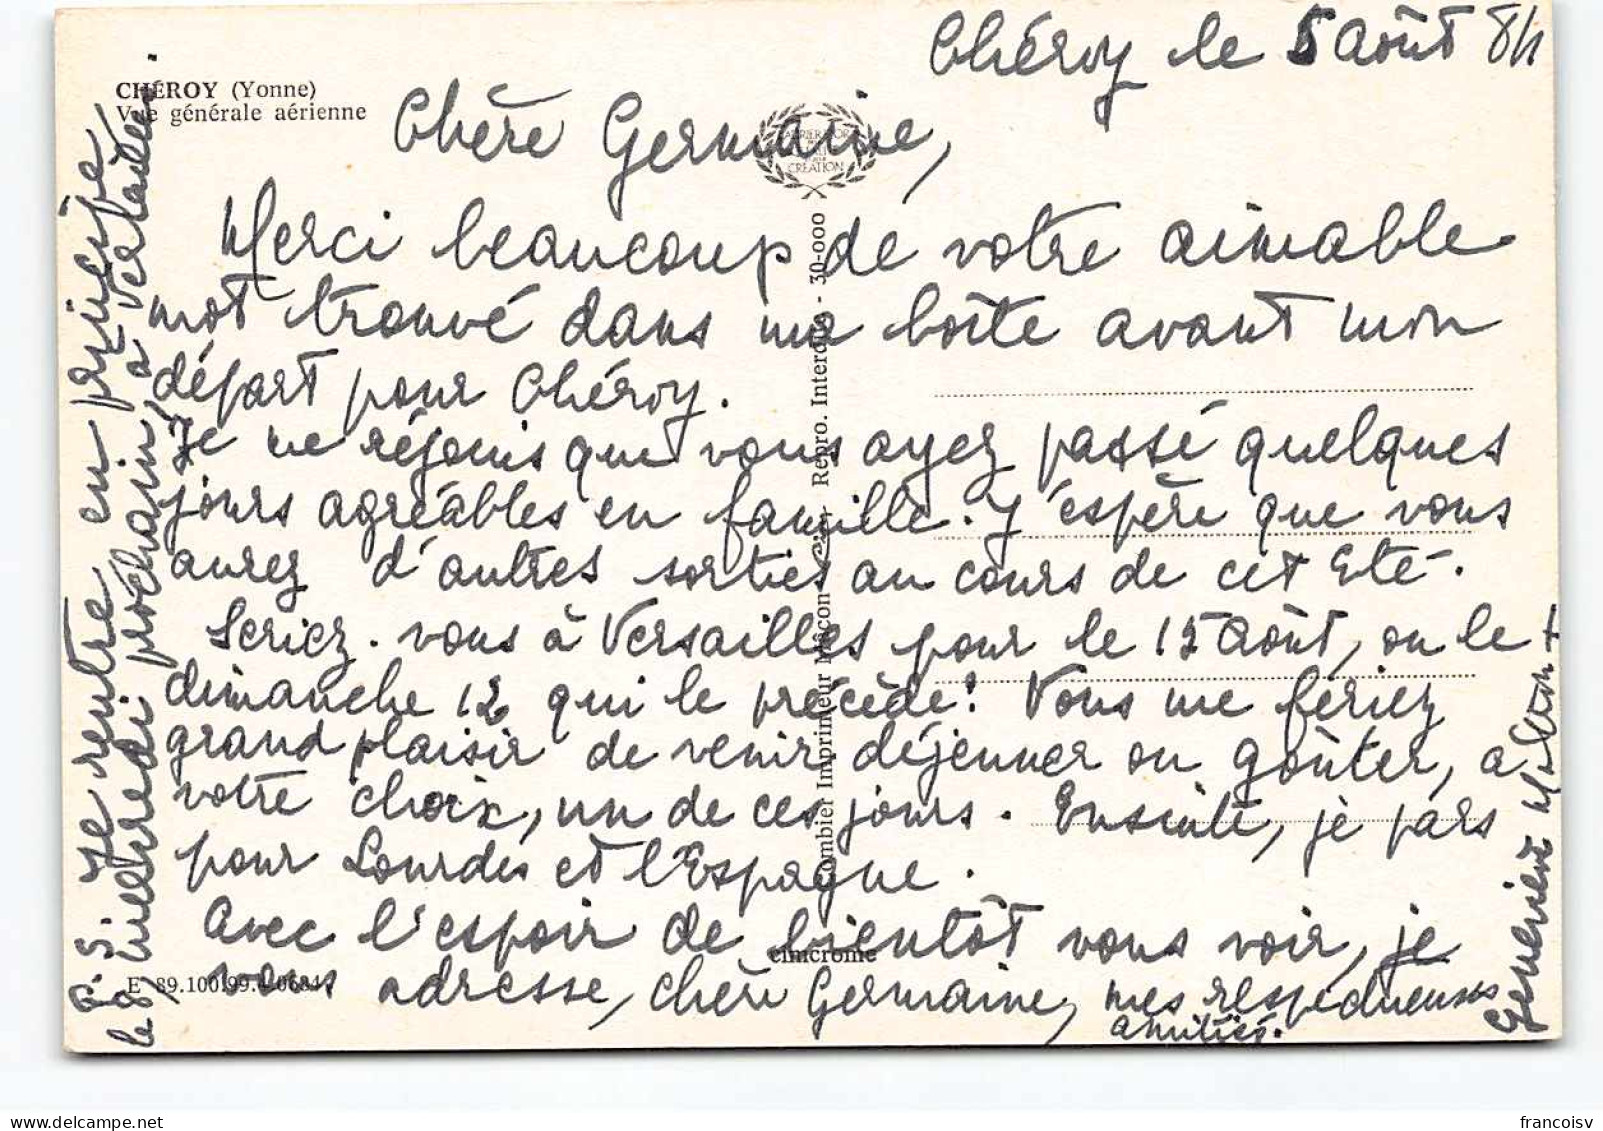 Chéroy le 5 Août 84
CHÉROY (Yonne)
Vue générale aérienne
Chère Germaine,
CRÉATION
Merci beaucoup de votre aimable
mot trouvé dans ma boîte avant mon
départ pour Chéroy.
Je me réjouis que vous ayez passé quelques
jours agréables en famille. J'espère que vous
aurez d'autres sorties au cours de cet Eté.
Seriez-vous à Versailles pour le 15 Août, ou le
dimanche 12 qui le précède! Vous me fériez
grand plaisir de venir déjeuner ou goûter, à
votre choix, un de ces jours. Ensuite, je pars
pour Lourdes et l'Espagne.
Avec l'espoir de bientôt vous voir, je
vous adresse, chère Germaine, mes respectueuses
amitiés.
Geneviève
P.S. Je rentre en principe
le 8, mercredi prochain, à Versailles.
Combier Imprimeur Mâcon - Repro. Interdite - 30-000
cimcrome
E 89.100.99.
francoisv